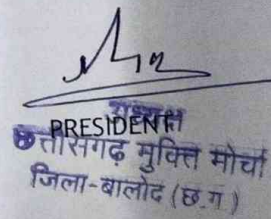 अध्यक्ष
PRESIDENT
छत्तीसगढ़ मुक्ति मोर्चा
जिला-बालोद (छ.ग)